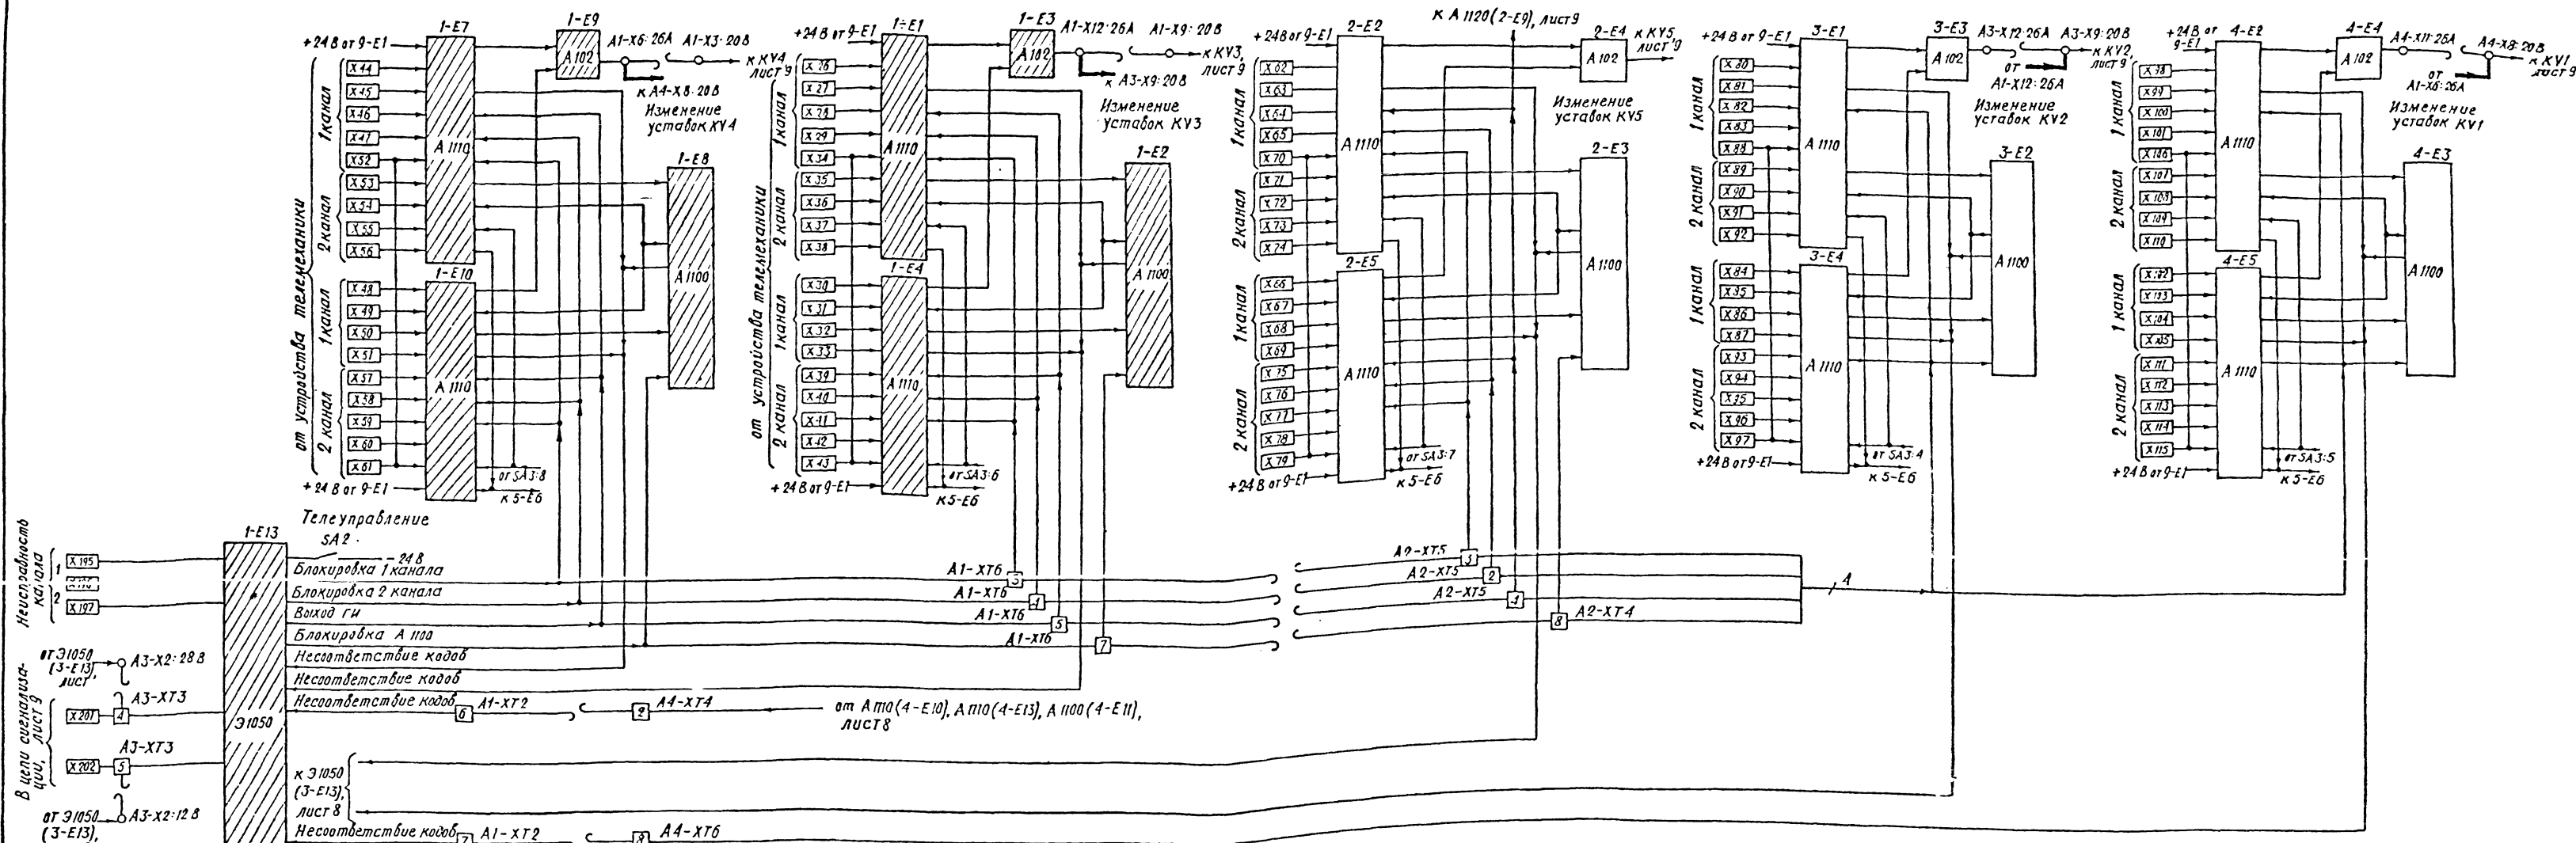 к А 1120 (2-Е9), лист 9
1-Е7
+24 В от 9-Е1
1-Е9
А 102
А1-Х6:26А
А1-Х3:20В
к KV4, лист 9
к А4-Х8:20В
Изменение
уставок XV4
от устройства телемеханики
1 канал
Х44
Х45
Х46
Х47
Х52
2 канал
Х53
Х54
Х55
Х56
А 1110
1-Е8
А 1100
1-Е10
1 канал
Х48
Х49
Х50
Х51
2 канал
Х57
Х58
Х59
Х60
Х61
А 1110
+24 В от 9-Е1
от SA3:8
к 5-Е6
1-Е1
+24В от 9-Е1
1-Е3
А 102
А1-Х12:26А
А1-Х9:20В
к KV3,
лист 9
к А3-Х9:20В
Изменение
уставок KV3
от устройства телемеханики
1 канал
Х26
Х27
Х28
Х29
Х34
2 канал
Х35
Х36
Х37
Х38
А 1110
1-Е2
А 1100
1-Е4
1 канал
Х30
Х31
Х32
Х33
2 канал
Х39
Х40
Х41
Х42
Х43
А 1110
+24В от 9-Е1
от SA3:6
к 5-Е6
2-Е2
+24В от 9-Е1
2-Е4
А 102
к KV5
лист 9
Изменение
уставок KV5
1 канал
Х62
Х63
Х64
Х65
Х70
2 канал
Х71
Х72
Х73
Х74
А 1110
2-Е3
А 1100
2-Е5
1 канал
Х66
Х67
Х68
Х69
2 канал
Х75
Х76
Х77
Х78
Х79
А 1110
+24В от 9-Е1
от SA3:7
к 5-Е6
3-Е1
+24 В от 9-Е1
3-Е3
А 102
А3-Х12:26А
А3-Х9:20В
к KV2,
лист 9
от
А1-Х12:26А
Изменение
уставок KV2
1 канал
Х80
Х81
Х82
Х83
Х88
2 канал
Х89
Х90
Х91
Х92
А 1110
3-Е2
А 1100
3-Е4
1 канал
Х84
Х85
Х86
Х87
2 канал
Х93
Х94
Х95
Х96
Х97
А 1110
+24В от 9-Е1
от SA3:4
к 5-Е6
4-Е2
+24В от
9-Е1
4-Е4
А 102
А4-Х11:26А
А4-Х8:20В
к KV1
лист 9
от
А1-Х6:26А
Изменение
уставок KV1
1 канал
Х98
Х99
Х100
Х101
Х106
2 канал
Х107
Х108
Х109
Х110
А 1110
4-Е3
А 1100
4-Е5
1 канал
Х102
Х103
Х104
Х105
2 канал
Х111
Х112
Х113
Х114
Х115
А 1110
+24В от 9-Е1
от SA3:5
к 5-Е6
Неисправность
канала
1
2
Х195
Х197
1-Е13
Э1050
Телеуправление
SA2
-24 В
Блокировка 1 канала
Блокировка 2 канала
Выход ГИ
Блокировка А 1100
Несоответствие кодов
Несоответствие кодов
Несоответствие кодов
А1-ХТ6
3
А1-ХТ6
4
А1-ХТ6
5
А1-ХТ6
7
А2-ХТ5
3
А2-ХТ5
2
А2-ХТ5
4
А2-ХТ4
8
4
6
А1-ХТ2
2
А4-ХТ4
от А 1110 (4-Е10), А 1110 (4-Е13), А 1100 (4-Е11),
лист 8
от Э1050
(3-Е13),
лист
А3-Х2:28В
В цепи сигнализа-
ции, лист 9
Х201
4
А3-ХТ3
Х202
5
А3-ХТ3
от Э1050
(3-Е13),
А3-Х2:12В
к Э1050
(3-Е13),
лист 8
Несоответствие кодов
7
А1-ХТ2
8
А4-ХТ6